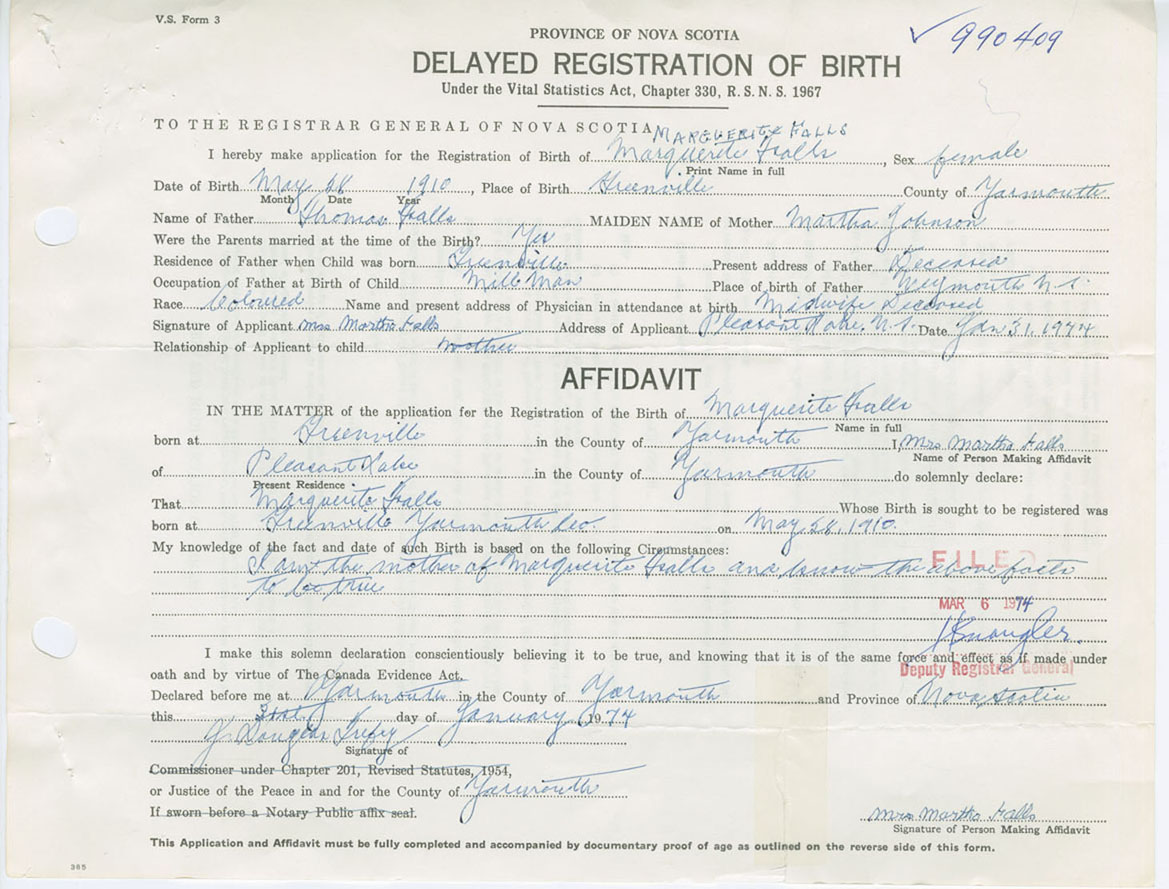 V.S. Form 3
PROVINCE OF NOVA SCOTIA
✓ 990409
DELAYED REGISTRATION OF BIRTH
Under the Vital Statistics Act, Chapter 330, R. S. N. S. 1967
TO THE REGISTRAR GENERAL OF NOVA SCOTIA
MARGUERITE FALLS
I hereby make application for the Registration of Birth of Marguerite Falls, Sex female
Print Name in full
Date of Birth May 28 1910, Place of Birth Greenville County of Yarmouth
Month Date Year
Name of Father Thomas Falls MAIDEN NAME of Mother Martha Johnson
Were the Parents married at the time of the Birth? Yes
Residence of Father when Child was born Greenville Present address of Father Deceased
Occupation of Father at Birth of Child Mill Man Place of birth of Father Weymouth N.S.
Race Coloured Name and present address of Physician in attendance at birth Midwife Deceased
Signature of Applicant Mrs Martha Falls Address of Applicant Pleasant Lake, N.S. Date Jan 31, 1974
Relationship of Applicant to child mother
AFFIDAVIT
IN THE MATTER of the application for the Registration of the Birth of Marguerite Falls
Name in full
born at Greenville in the County of Yarmouth I, Mrs Martha Falls
Name of Person Making Affidavit
of Pleasant Lake in the County of Yarmouth do solemnly declare:
Present Residence
That Marguerite Falls Whose Birth is sought to be registered was
born at Greenville Yarmouth Co. on May 28, 1910.
My knowledge of the fact and date of such Birth is based on the following Circumstances:
I am the mother of Marguerite Falls and know the above facts
to be true
FILED
MAR 6 1974
Deputy Registrar General
I make this solemn declaration conscientiously believing it to be true, and knowing that it is of the same force and effect as if made under
oath and by virtue of The Canada Evidence Act.
Declared before me at Yarmouth in the County of Yarmouth and Province of Nova Scotia
this 31st day of January 1974
J. Douglas
Signature of
Commissioner under Chapter 201, Revised Statutes, 1954,
or Justice of the Peace in and for the County of Yarmouth
If sworn before a Notary Public affix seal.
Mrs Martha Falls
Signature of Person Making Affidavit
This Application and Affidavit must be fully completed and accompanied by documentary proof of age as outlined on the reverse side of this form.
385